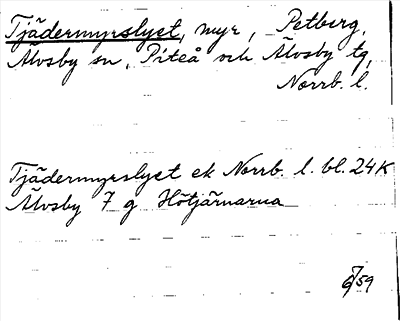 Tjädermyrslyet, myr, Petberg,
Älvsby sn, Piteå och Älvsby tg,
Norrb. l.
Tjädermyrslyet ek Norrb. l. bl. 24K
Älvsby 7 g Hötjärnarna
59